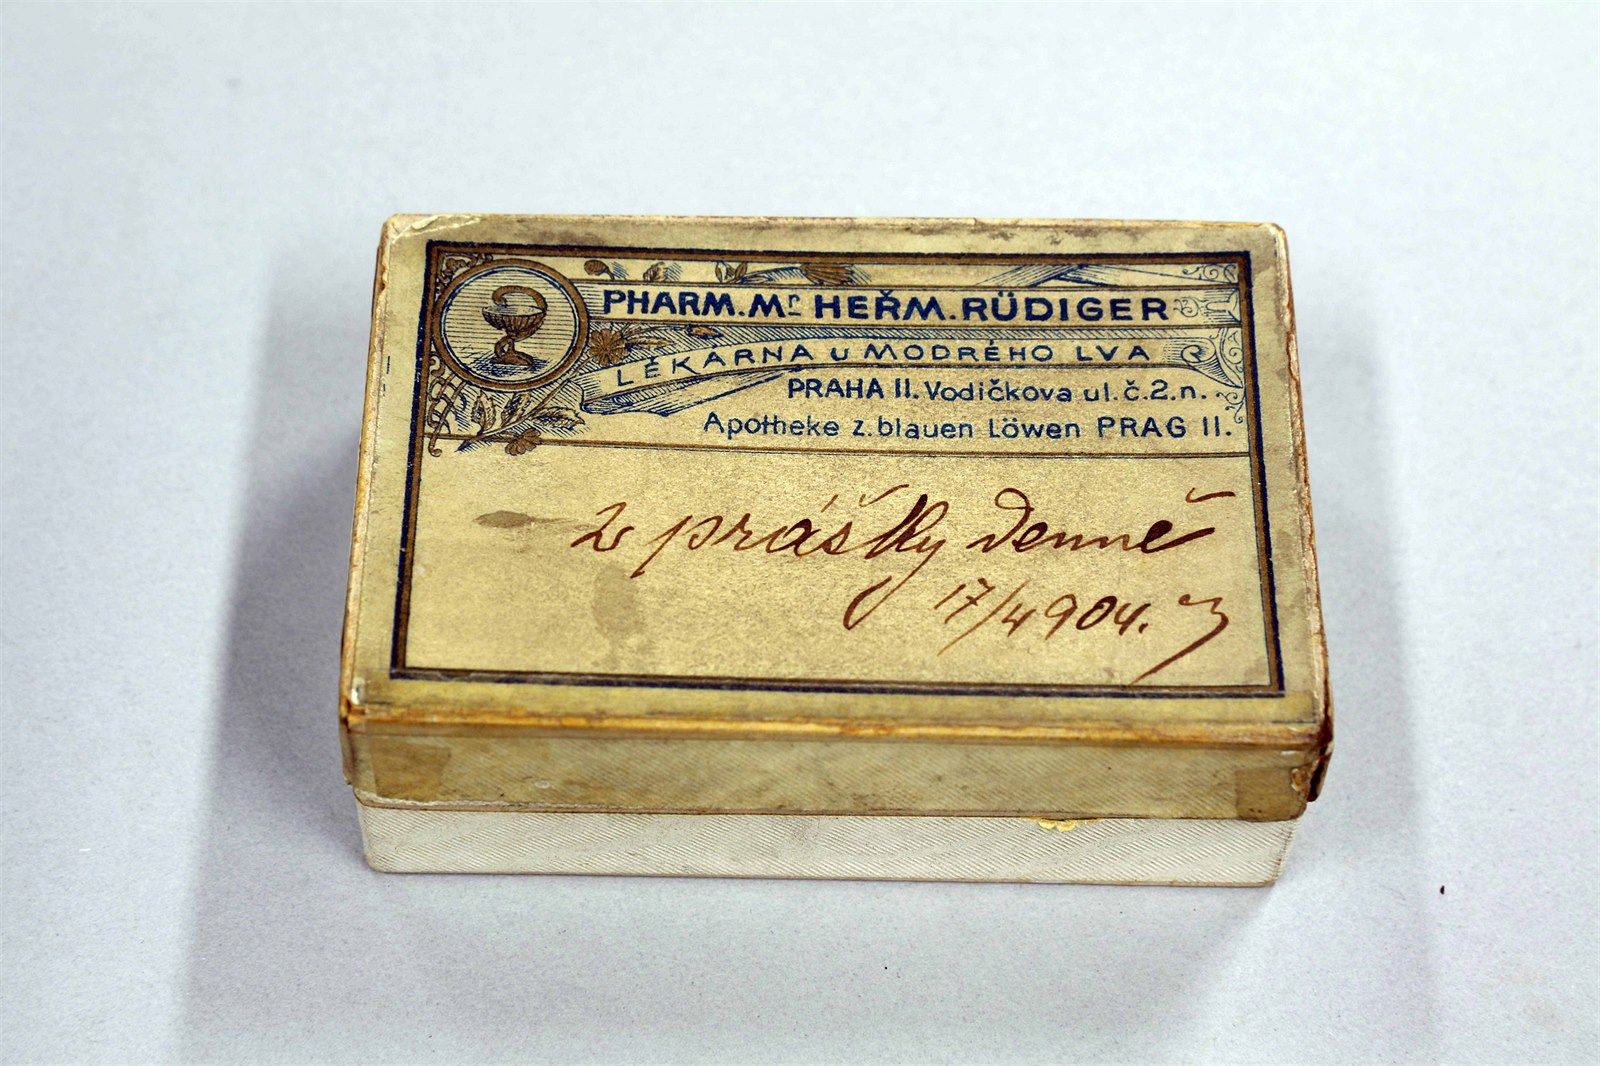 PHARM. Mr HEŘM. RÜDIGER
LÉKÁRNA U MODRÉHO LVA
PRAHA II. Vodičkova ul. č. 2. n.
Apotheke z. blauen Löwen PRAG II.
2 prášky denně
17/4 904.